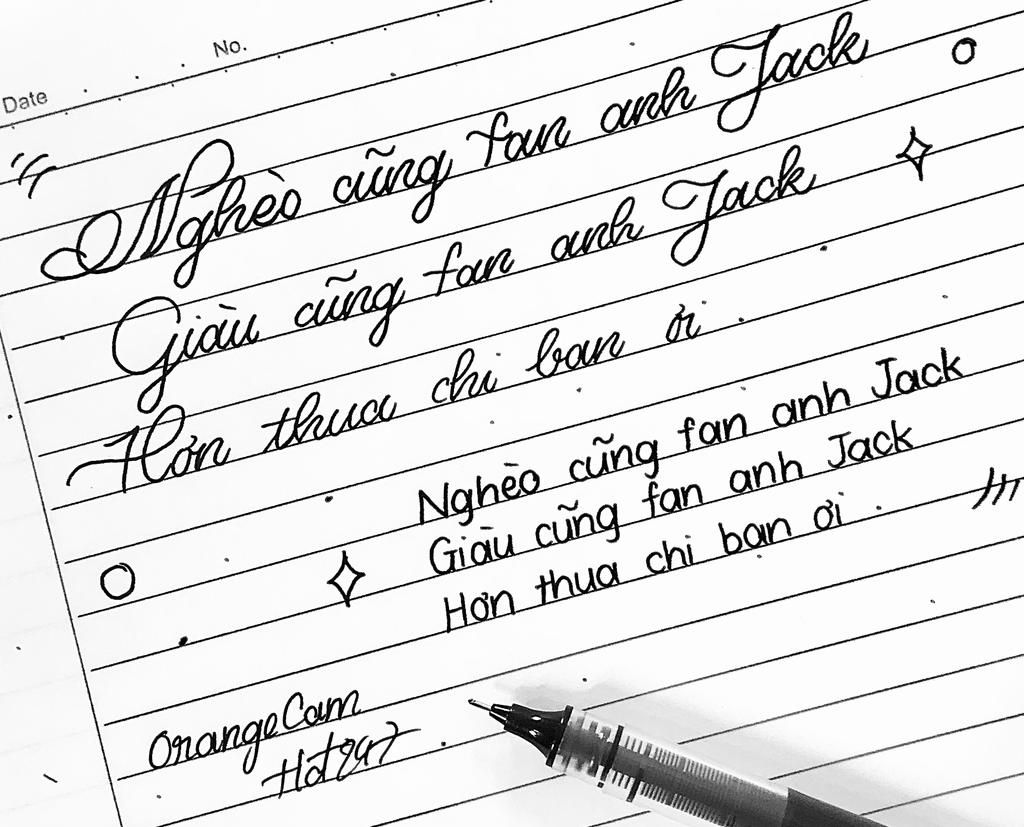 No.
Date
Nghèo cũng fan anh Jack
Giàu cũng fan anh Jack
Hơn thua chi bạn ời
Nghèo cũng fan anh Jack
Giàu cũng fan anh Jack
Hơn thua chi bạn ơi
OrangeCam
Hot247